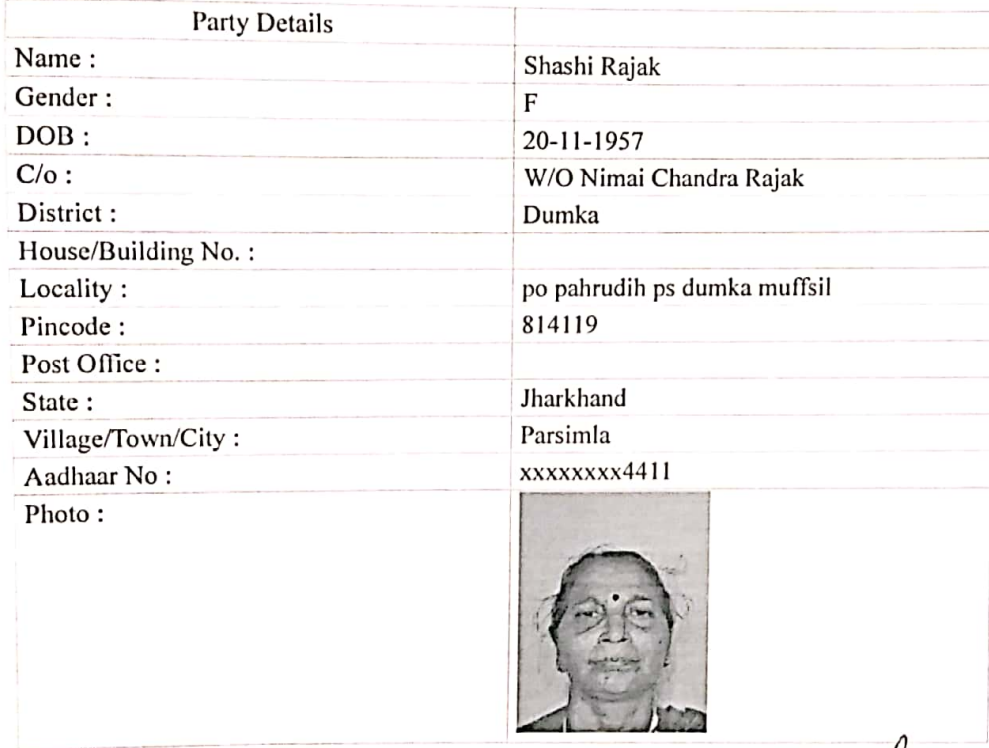 Party Details
Name : Shashi Rajak
Gender : F
DOB : 20-11-1957
C/o : W/O Nimai Chandra Rajak
District : Dumka
House/Building No. :
Locality : po pahrudih ps dumka muffsil
Pincode : 814119
Post Office :
State : Jharkhand
Village/Town/City : Parsimla
Aadhaar No : xxxxxxxx4411
Photo :